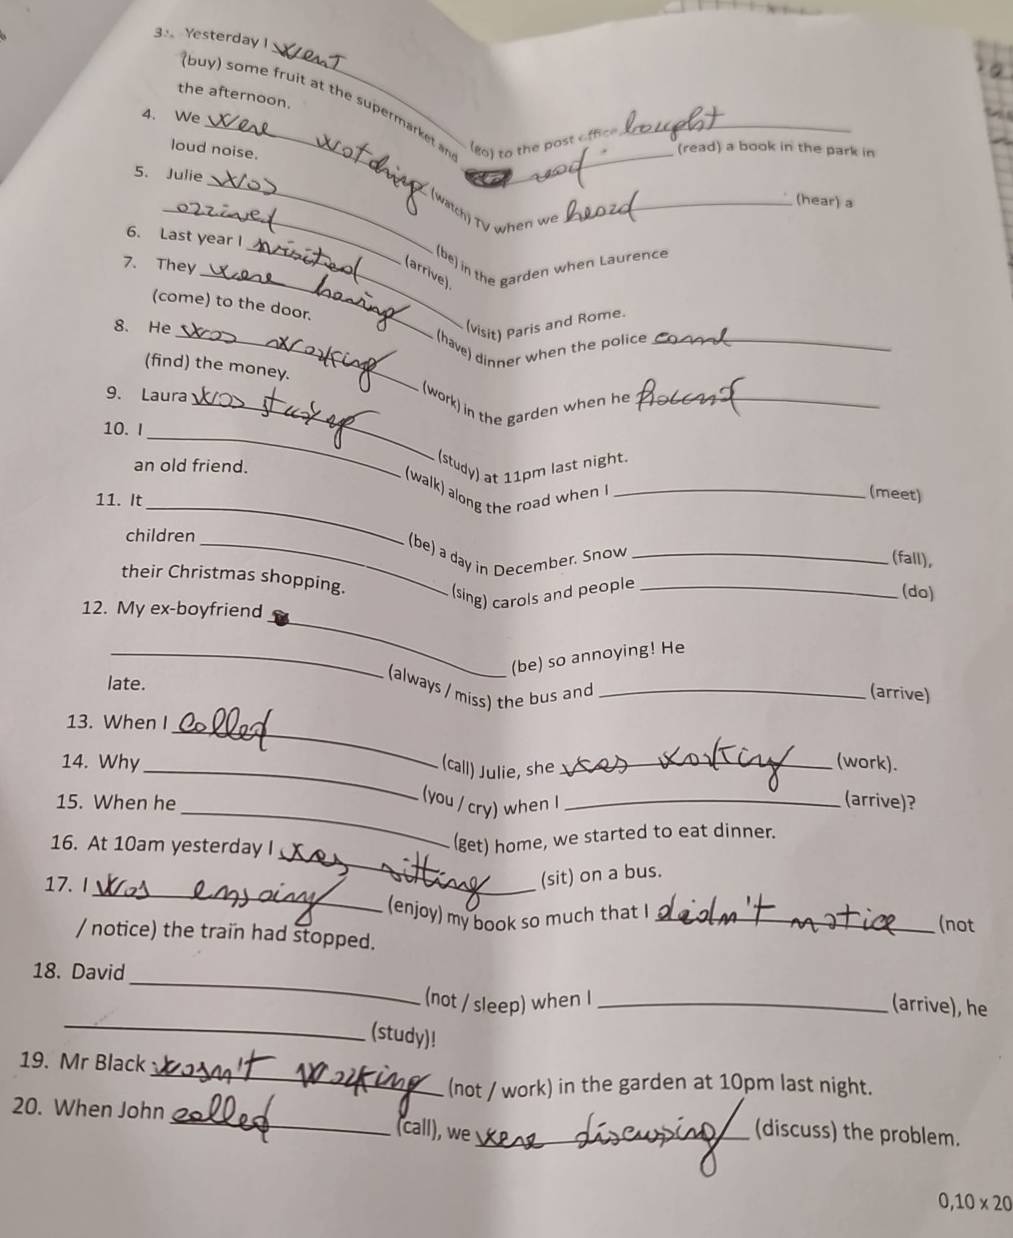 3. Yesterday I went (go) to the post office bought
(buy) some fruit at the supermarket and read (read) a book in the park in
the afternoon.
4. We were wotching (watch) TV when we heord (hear) a
loud noise.
5. Julie wos (be) in the garden when Laurence
orrived (arrive).
6. Last year I visited (visit) Paris and Rome.
7. They were having (have) dinner when the police
(come) to the door.
8. He wos working (work) in the garden when he found
(find) the money.
9. Laura wos (study) at 11pm last night.
10. I (walk) along the road when I (meet)
an old friend.
11. It (be) a day in December. Snow (fall),
children (sing) carols and people (do)
their Christmas shopping.
12. My ex-boyfriend (be) so annoying! He
(always / miss) the bus and (arrive)
late.
13. When I Colled (call) Julie, she wos working (work).
14. Why (you / cry) when I (arrive)?
15. When he (get) home, we started to eat dinner.
16. At 10am yesterday I wos sitting (sit) on a bus.
17. I wos (enjoy) my book so much that I didn't notice (not
/ notice) the train had stopped.
18. David (not / sleep) when I (arrive), he
(study)!
19. Mr Black wosn't working (not / work) in the garden at 10pm last night.
20. When John colled (call), we were (discuss) the problem.
0,10 x 20